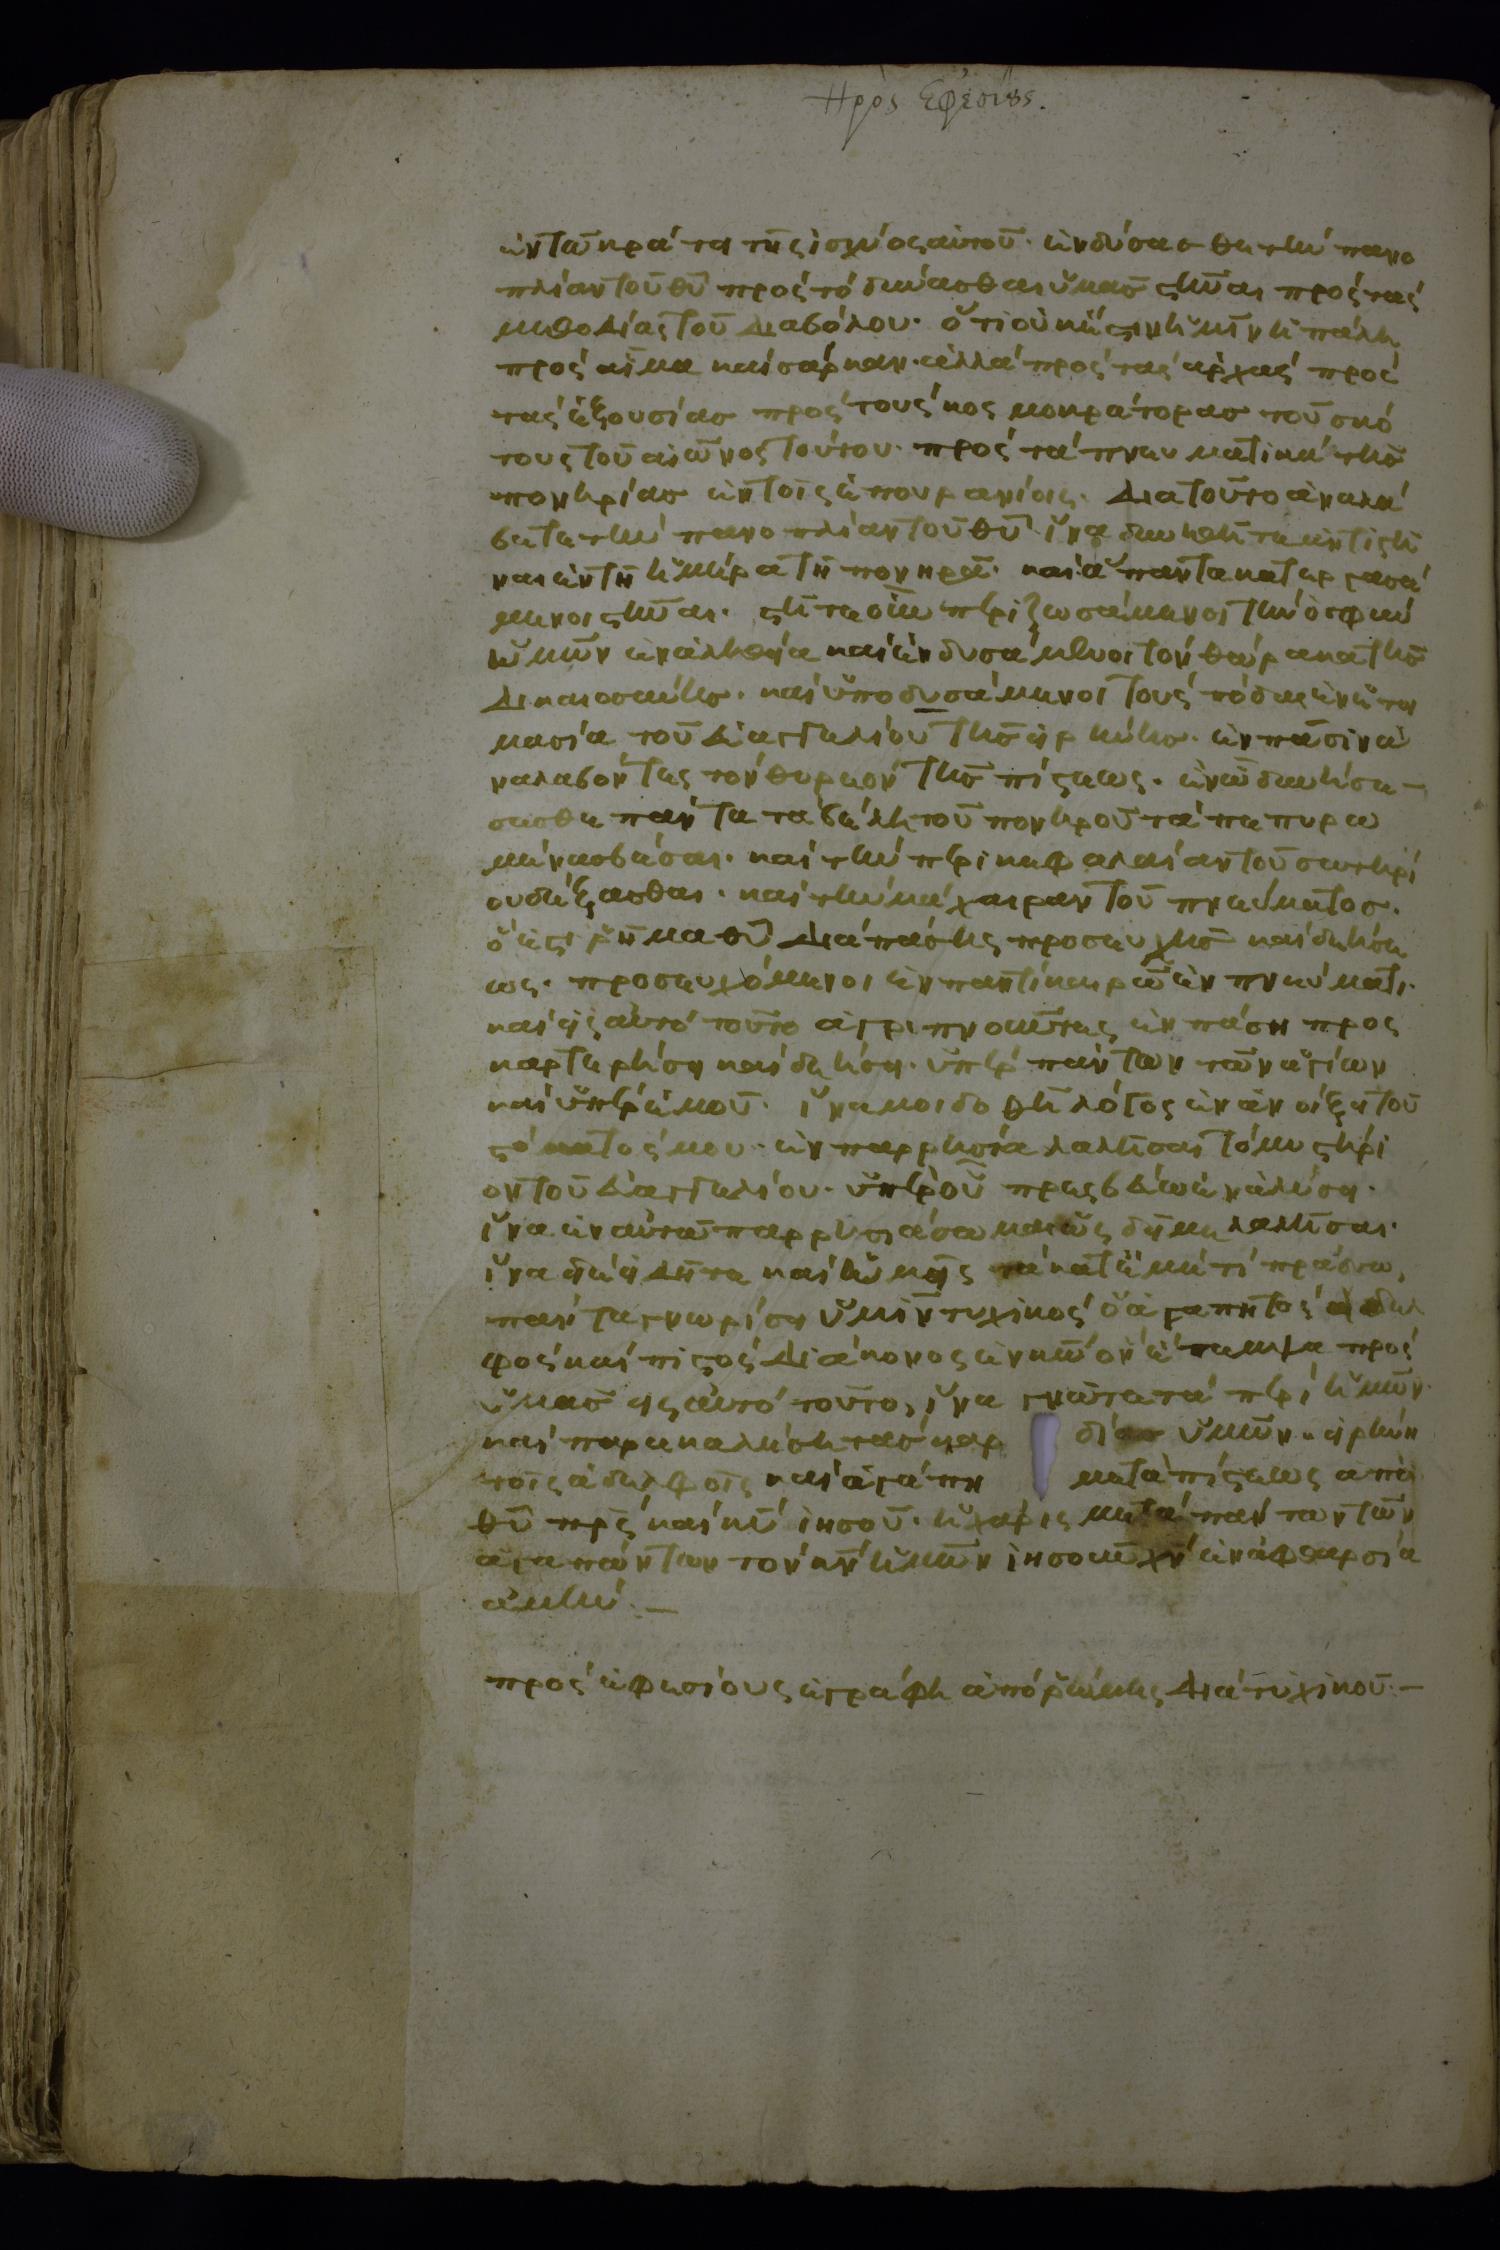 Πρὸς Ἐφεσίους.
ἐν τῶ κράτει τῆς ἰσχύος αὐτοῦ· ἐνδύσασθε τὴν πανο
πλίαν τοῦ θυ πρὸς τὸ δύνασθαι ὑμᾶς στῆναι πρὸς τὰς
μεθοδίας τοῦ διαβόλου· ὅτι οὐκ ἔστιν ἡμῖν ἡ πάλη
πρὸς αἷμα καὶ σάρκαν· ἀλλὰ πρὸς τὰς ἀρχὰς πρὸς
τὰς ἐξουσίας πρὸς τοὺς κοσμοκράτορας τοῦ σκό
τους τοῦ αἰῶνος τούτου· πρὸς τὰ πνευματικὰ τῆς
πονηρίας ἐν τοῖς ἐπουρανίοις· Διατοῦτο ἀναλά
βετε τὴν πανοπλίαν τοῦ θυ ἵνα δυνηθῆτε ἀντιστῆ
ναι ἐν τῆ ἡμέρα τῆ πονηρᾶ· καὶ ἅπαντα κατεργασά
μενοι στῆναι· στῆτε οὖν περιζωσάμενοι τὴν ὀσφὺν
ὑμῶν ἐν ἀληθεία καὶ ἐνδυσάμενοι τὸν θώρακα τῆς
Δικαιοσύνης· καὶ ὑποδυσάμενοι τοὺς πόδας ἐν ἑτοι
μασία τοῦ εὐαγγελίου τῆς εἰρήνης· ἐν πᾶσιν ἀ
ναλαβόντες τὸν θυρεὸν τῆς πίστεως· ἐν ὧ δυνήσε
σεσθε πάντα τὰ βέλη τοῦ πονηροῦ τὰ πεπυρω
μένα σβέσαι· καὶ τὴν περικεφαλαίαν τοῦ σωτηρί
ου δέξασθαι· καὶ τὴν μάχαιραν τοῦ πνεύματος·
ὅ ἐστι ῥῆμα θυ Διὰ πάσης προσευχῆς καὶ δεήσε
ως· προσευχόμενοι ἐν παντὶ καιρῶ ἐν πνεύματι·
καὶ εἰς αὐτὸ τοῦτο ἀγριπνοῦντες ἐν πάση προς
καρτερήσει καὶ δεήσει· ὑπὲρ πάντων τῶν ἁγίων
καὶ ὑπὲρ ἐμοῦ· ἵνα μοι δοθῆ λόγος ἐν ἀνοίξει τοῦ
στόματός μου· ἐν παρρησία λαλῆσαι τὸ μυστήρι
ον τοῦ εὐαγγελίου· ὑπὲρ οὗ πρεσβεύω ἐν ἀλύσει·
ἵνα ἐν αὐτῶ παρρησιάσωμαι ὥς δεῖ με λαλῆσαι·
ἵνα δὲ εἰδῆτε καὶ ὑμεῖς τὰ κατ' ἐμὲ τί πράσσω,
πάντα γνωρίσει ὑμῖν τυχικὸς ὁ ἀγαπητὸς ἀδελ
φὸς καὶ πιστὸς Διάκονος ἐν κω ὃν ἔπεμψα πρὸς
ὑμᾶς εἰς αὐτὸ τοῦτο, ἵνα γνῶτε τὰ περὶ ἡμῶν·
καὶ παρακαλέση τὰς καρδίας ὑμῶν· εἰρήνη
τοῖς ἀδελφοῖς καὶ ἀγάπη μετὰ πίστεως ἀπὸ
θυ πρς καὶ κυ ἰησοῦ· ἡ χάρις μετὰ πάντων τῶν
ἀγαπώντων τὸν κν ἡμῶν ἰησοῦν χν ἐν ἀφθαρσία
ἀμήν·
πρὸς ἐφεσίους ἐγράφη ἀπὸ ῥώμης Διὰ τυχικοῦ·